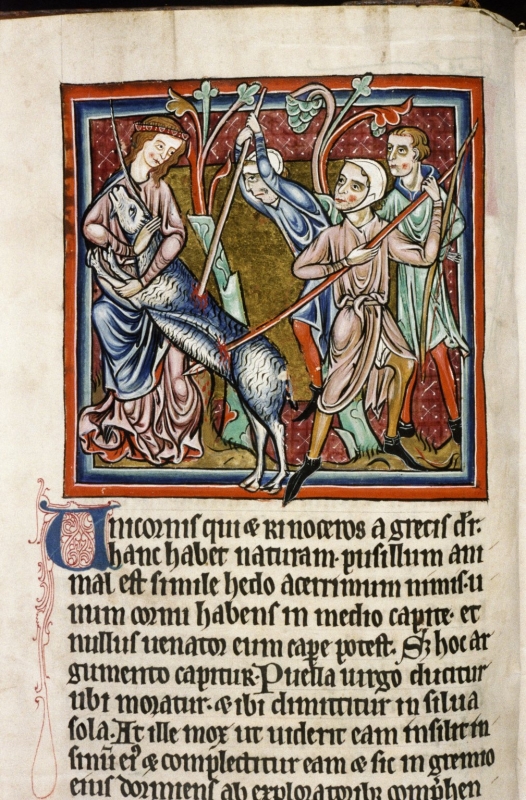 Unicornis qui & Rinoceros a grecis dr̄.
hanc habet naturam. pusillum ani
mal est simile hedo acerrimum nimis. u
num cornu habens in medio capite. et
nullus uenator eum cape potest. Sʒ hoc ar
gumento capitur. Puella uirgo ducitur
ubi moratur. & ibi dimittitur in silua
sola. At ille mox ut uiderit eam insilit in
sinū eiꝰ & complectitur eam & sic in gremio
eius dormiens ab exploratoribꝰ comp̄hen